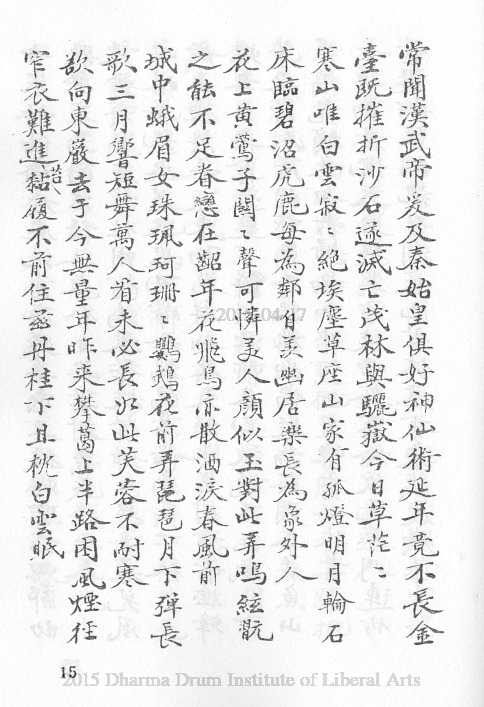 常聞漢武帝爰及秦始皇俱好神仙術延年竟不長金
臺既摧折沙石遂滅亡茂林與驪嶽今日草茫〻
寒山唯白雲寂〻絕埃塵草座山家有孤燈明月輪石
床臨碧沼虎鹿每為鄰自羨幽居樂長為象外人
花上黃鶯子關〻聲可憐美人顏似玉對此弄鳴絃翫
之能不足眷戀在齠年花飛鳥亦散洒淚春風前
城中蛾眉女珠珮珂珊〻鸚鵡花前弄琵琶月下彈長
歌三月響短舞萬人看未必長如此芙蓉不耐寒
欲向東巖去于今無量年昨来攀葛上半路困風煙徑
窄衣難進苔黏履不前住茲丹桂下且枕白雲眠
15
2015 Dharma Drum Institute of Liberal Arts